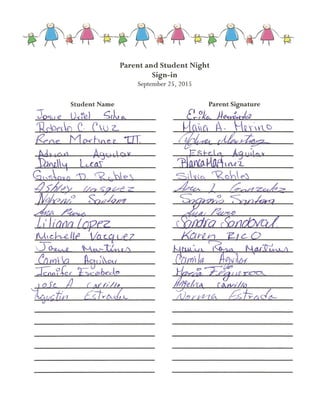 Parent and Student Night
Sign-in
September 25, 2015
Student Name Parent Signature
Josue Uriel Silva Erika Hernández
Roberto C. Cruz Maria A. Merino
Rene Martinez III. Martinez
Adrian Aguilar Estela Aguilar
Danelly Lucas Blanca Martinez
Gustavo D. Robles Silvia Robles
Ashley Vasquez Ana L Gonzalez
Nohemi Santana Santana
Liliana Lopez Sandra Sandoval
Michelle Vazquez Karen Rico
Josue Martinus Maria Rosa Martinus
Camila Aguilar Camila Aguilar
Jennifer Escobedo Maria Figueroa
Jose A Carrillo Angelina Carrillo
Agustin Estrada Norma Estrada